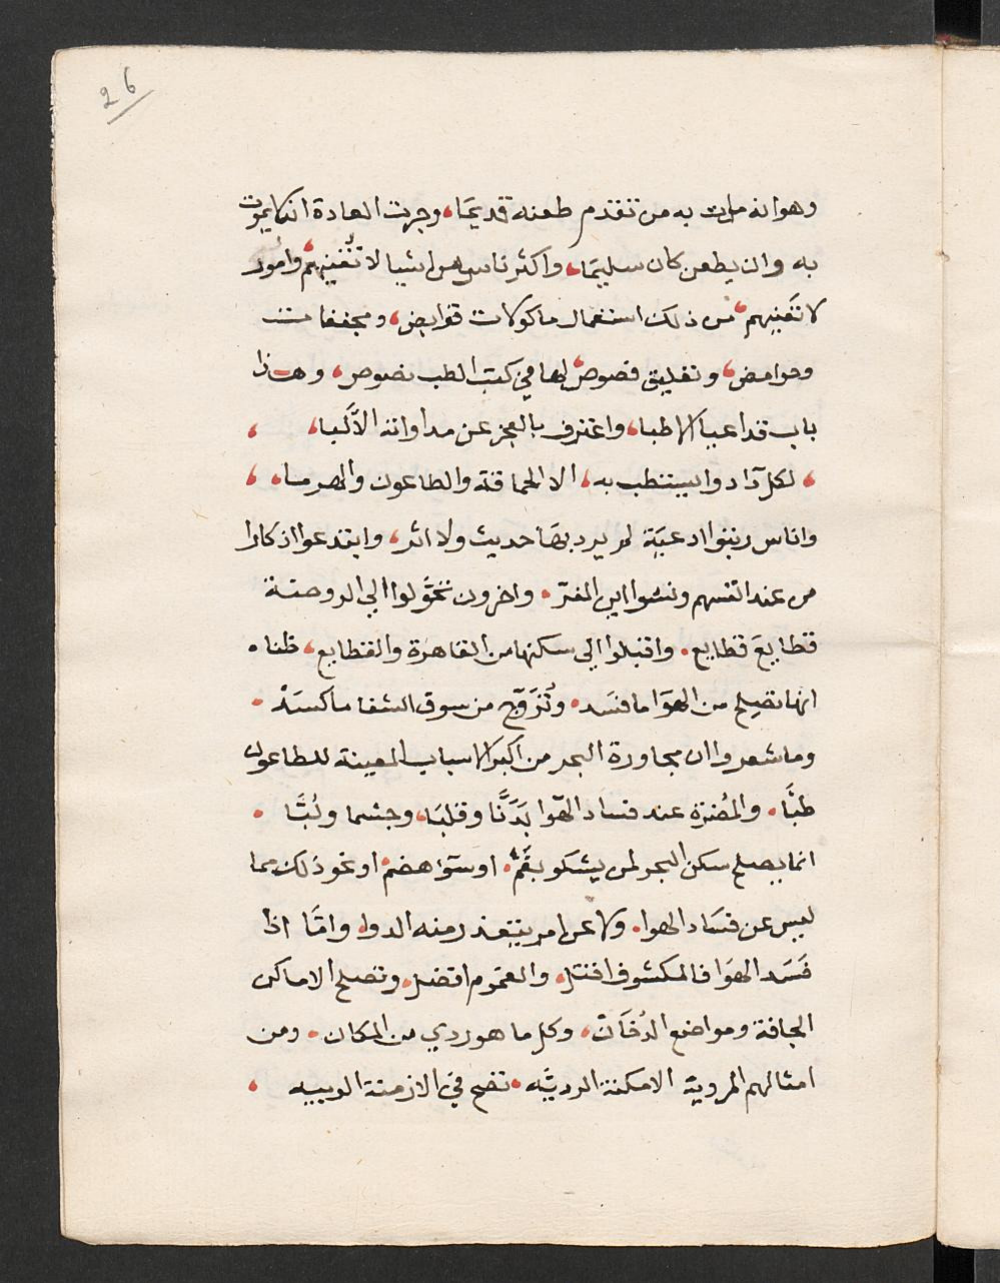 26
وهو انه مات به من تقدم طعنه قديمًا، وجرت العادة انه لا يموت
به وان يطعن كان سليمًا، واكثر ناس من اشيا لا تُغنيهم، وامُور
لا تَعنيهم، من ذلك استعمال ماكولات قوابض، ومجففات
وحوامض، وتعليق فصوص لها في كتب الطب نصوص، وهذا
باب قد اعيا الاطبا، واعترف بالعجز عن مداواته الالَبا،
، لكل دآء دوا يستطب به، الا الحماقة والطاعون والهرما،
واناس رتبوا ادعيَة لم يرد بهَا حديث ولا اثر، وابتدعوا اذكارا
من عند انفسهم ونسوا اين المفرّ. واخرون تحَوَّلوا الي الروضة
قطايعَ قطايع. واقبلوا الي سكنها من القاهرة والقطايع، ظنا.
انها تصلح من الهوَا ما فسَد. وتُرَوّج من سوق الشفا ما كسَدْ.
وما شعروا ان مجاورة البحر من اكبر الاسباب المعينة للطاعون
طبًّا، والمُضرة عند فساد الهَوا بَدَنًا وقلبَا، وجسما ولُبَّا.
انما يصلح سكن البحر لمن يشكو بغَمّ، او سوٓء هضم، او نحو ذلك مما
ليس عن فسَاد الهوا. ولا عن امر يتعذر منه الدوا، وامَّا اذا
فَسَد الهوَا فالمكشوف اقتل، والمغموم افضل، وتصلح الاماكن
الجافة ومواضع الدُخَان، وكل ما هو ردي من المكان. ومن
امثالهم المروية الامكنة الرديَّه. تصح في الازمنة الوبييه،